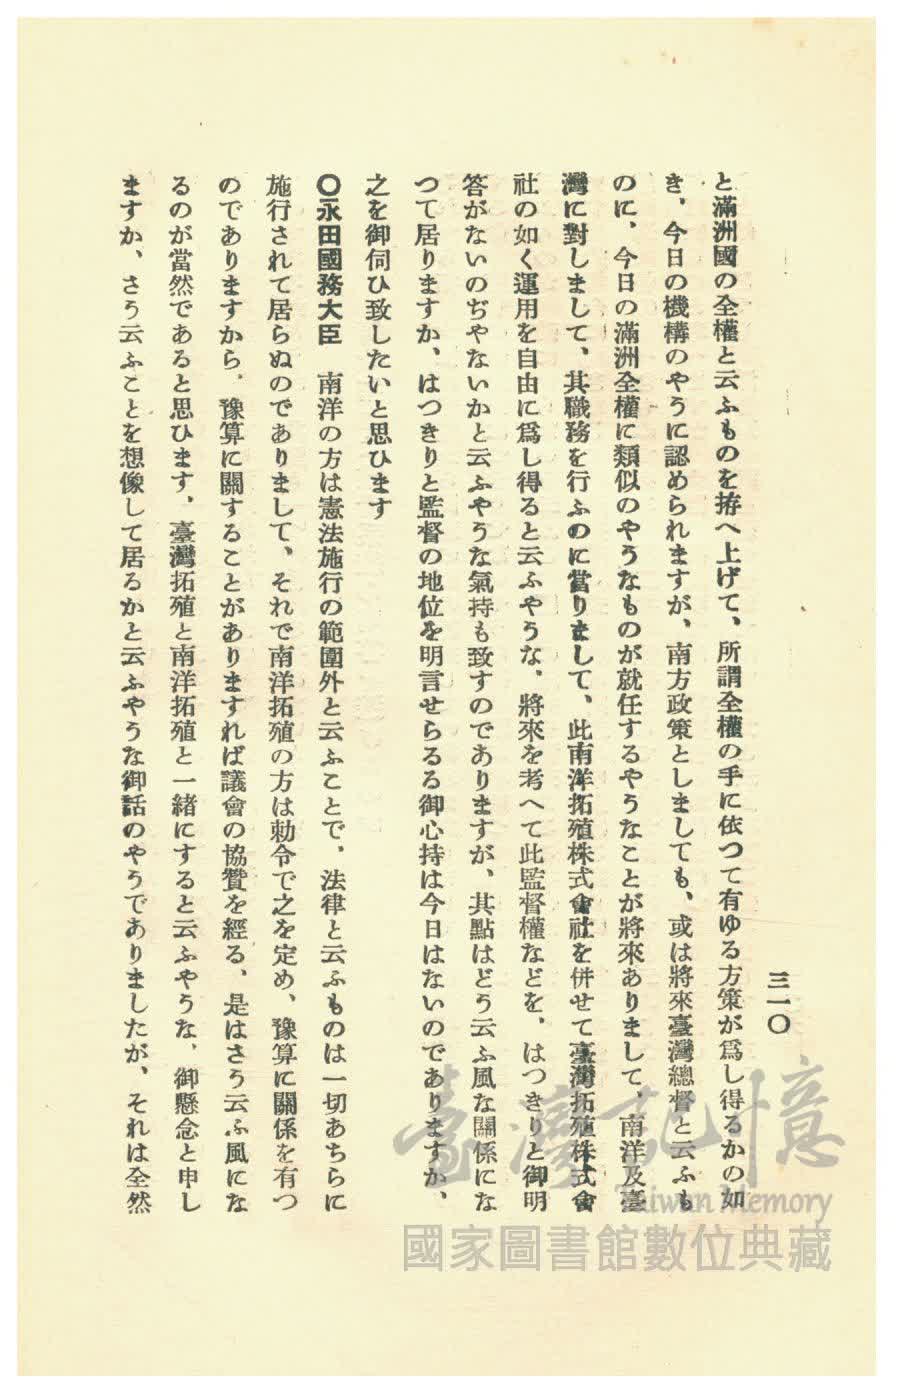 三一〇
と滿洲國の全權と云ふものを拵へ上げて、所謂全權の手に依つて有ゆる方策が爲し得るかの如
き、今日の機構のやうに認められますが、南方政策としましても、或は將來臺灣總督と云ふも
のに、今日の滿洲全權に類似のやうなものが就任するやうなことが將來ありまして、南洋及臺
灣に對しまして、其職務を行ふのに當りまして、此南洋拓殖株式會社を併せて臺灣拓殖株式會
社の如く運用を自由に爲し得ると云ふやうな、將來を考へて此監督權などを、はつきりと御明
答がないのぢやないかと云ふやうな氣持も致すのでありますが、其點はどう云ふ風な關係にな
つて居りますか、はつきりと監督の地位を明言せらるる御心持は今日はないのでありますか、
之を御伺ひ致したいと思ひます
〇永田國務大臣　南洋の方は憲法施行の範圍外と云ふことで、法律と云ふものは一切あちらに
施行されて居らぬのでありまして、それで南洋拓殖の方は勅令で之を定め、豫算に關係を有つ
のでありますから、豫算に關することがありますれば議會の協贊を經る、是はさう云ふ風にな
るのが當然であると思ひます、臺灣拓殖と南洋拓殖と一緒にすると云ふやうな、御懸念と申し
ますか、さう云ふことを想像して居るかと云ふやうな御話のやうでありましたが、それは全然
臺灣記憶
Taiwan Memory
國家圖書館數位典藏